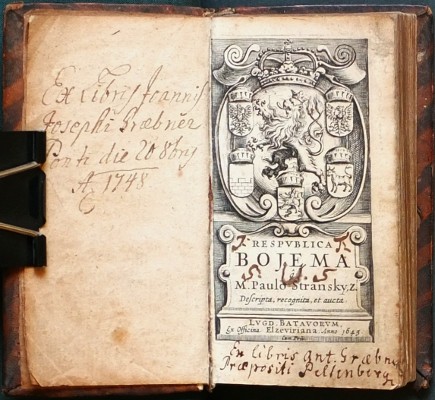 Ex Libris Joannis
Josephi Græbner
Ponti die 20 8bris
A. 1748
RESPVBLICA
BOJEMA
M. Paulo Stransky, z.
Descripta, recognita, et aucta.
LVGD. BATAVORVM,
Ex Officina Elzeviriana. Anno 1643
Cum Priv.
Ex libris Ant. Græbner
Præpositi